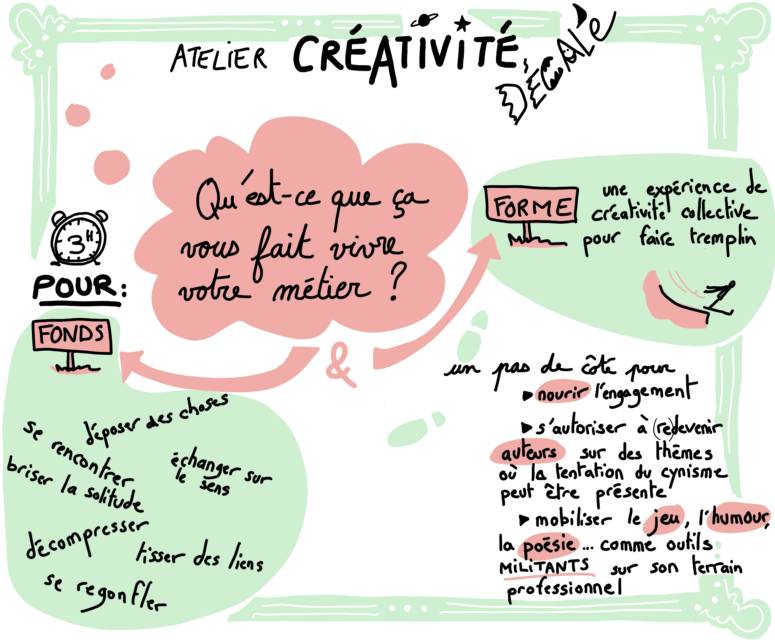 ATELIER CRÉATIVITÉ
DÉCALÉ
Qu'est-ce que ça
vous fait vivre
votre métier ?
3H
POUR :
FONDS
&
FORME
une expérience de
créativité collective
pour faire tremplin
déposer des choses
se rencontrer
briser la solitude
échanger sur
le sens
décompresser
tisser des liens
se regonfler
un pas de côté pour
▶ nourir l'engagement
▶ s'autoriser à (re)devenir
auteurs sur des thèmes
où la tentation du cynisme
peut être présente
▶ mobiliser le jeu, l'humour,
la poésie... comme outils
MILITANTS sur son terrain
professionnel